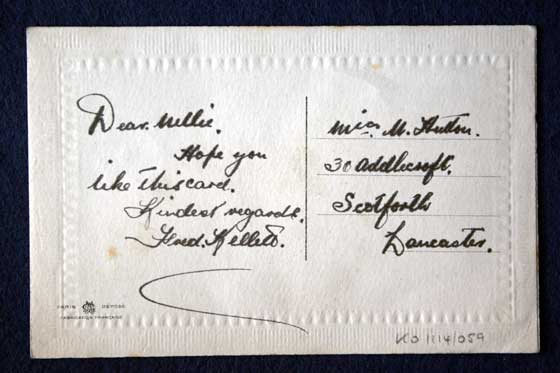 Dear. Nellie.
Hope you
like this card.
Kindest regards.
Fred. Kellett.
Miss M. Hutton.
30 Addlecroft.
Scotforth
Lancaster.
PARIS DÉPOSÉ
FABRICATION FRANÇAISE
KO 1114/059